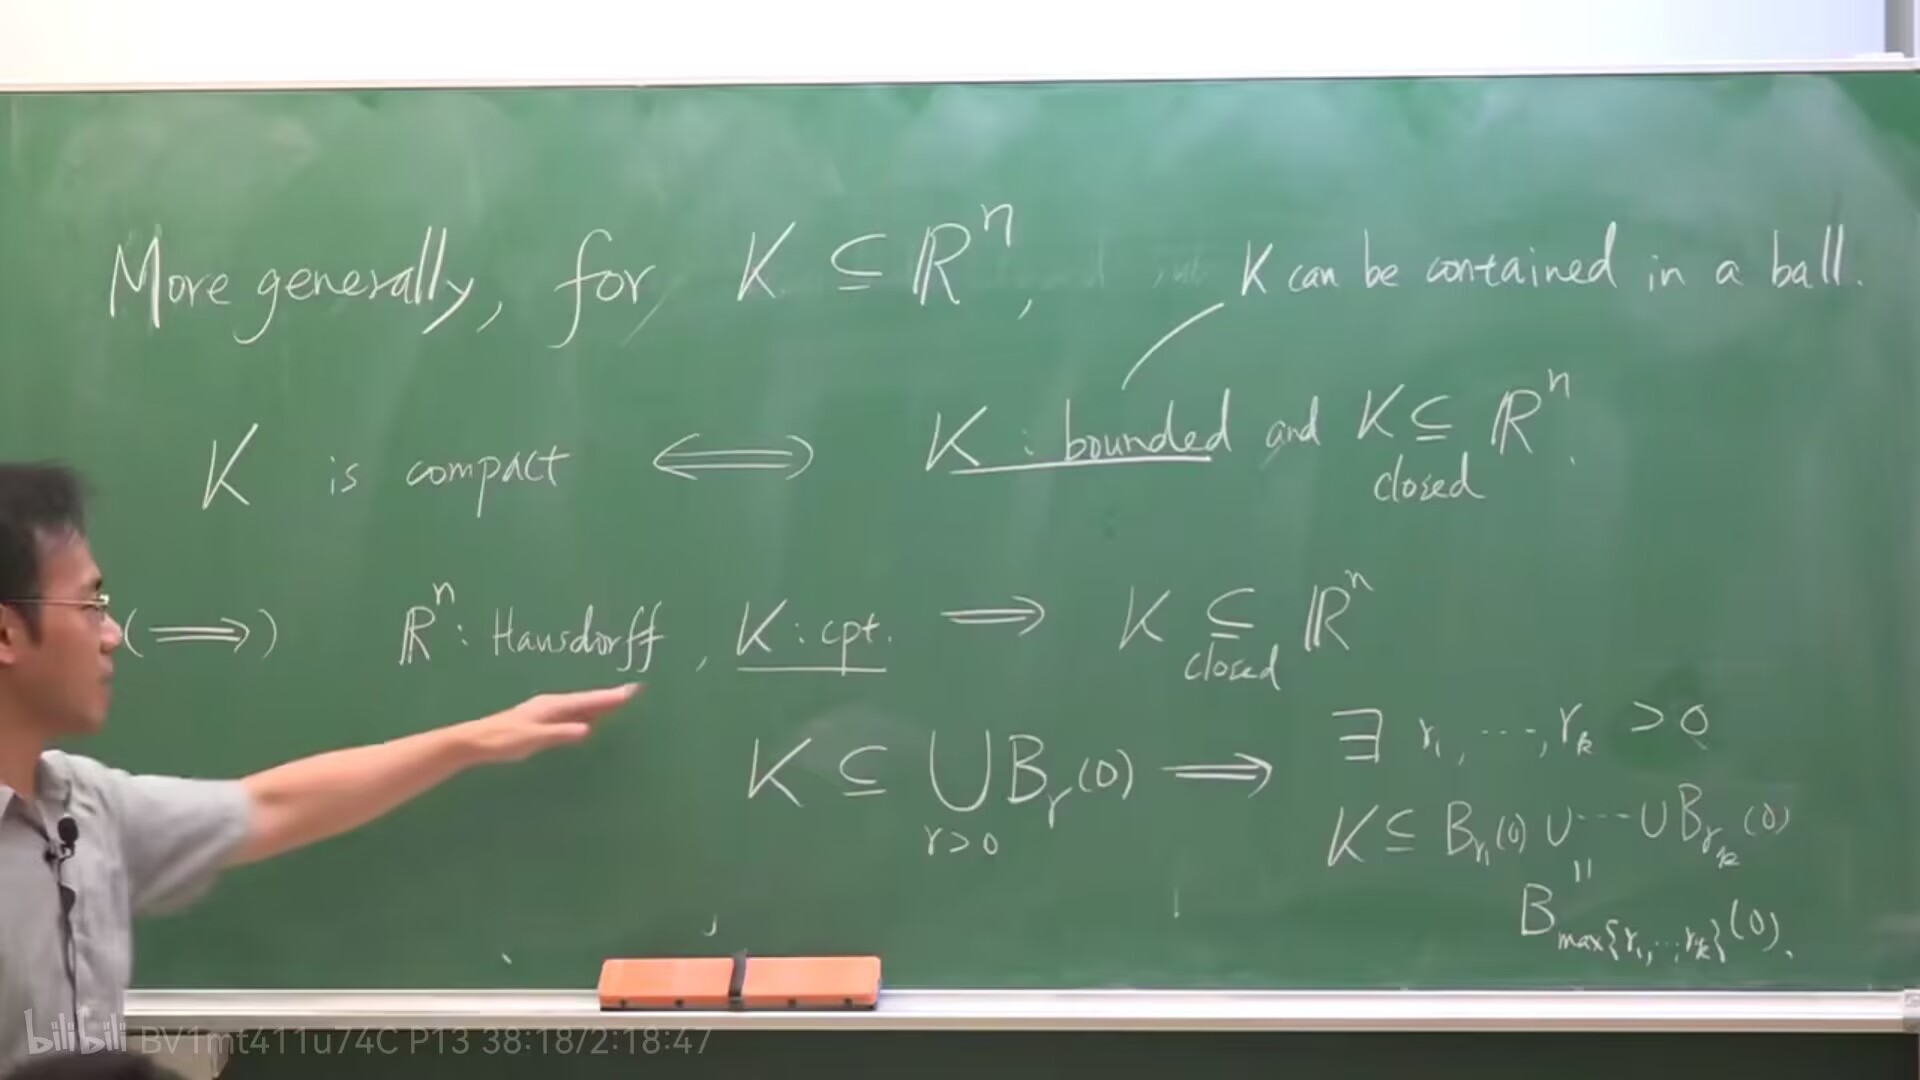 More generally, for K ⊆ ℝⁿ,
K can be contained in a ball.
K is compact ⟺ K : bounded and K ⊆ ℝⁿ.
closed
(⟹) ℝⁿ : Hausdorff, K : cpt. ⟹ K ⊆ ℝⁿ
closed
K ⊆ ⋃ B_r(0) ⟹ ∃ r₁, ⋯, r_k > 0
r>0
K ⊆ B_{r₁}(0) ∪ ⋯ ∪ B_{r_k}(0)
||
B_{max{r₁, ⋯, r_k}}(0).
bilibili BV1mt411u74C P13 38:18/2:18:47